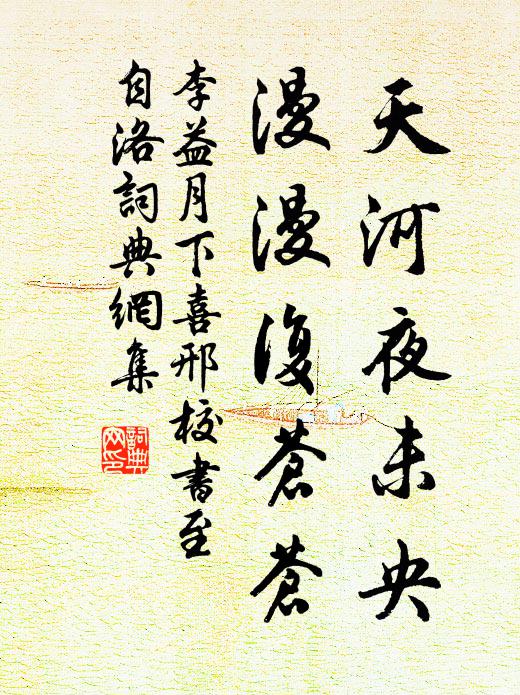 天河夜未央
漫漫復蒼蒼
李益月下喜邢校書至
自洛詞典網集
詞典
网印